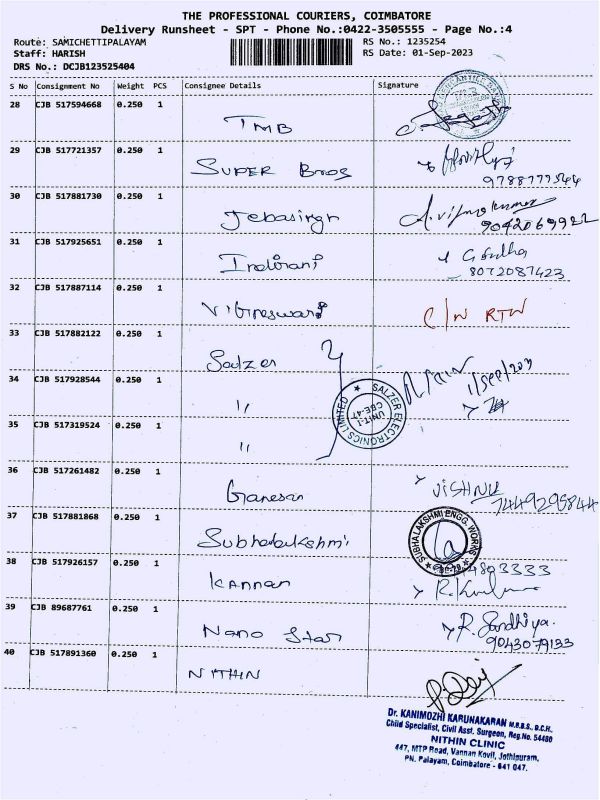 THE PROFESSIONAL COURIERS, COIMBATORE
Delivery Runsheet - SPT - Phone No.:0422-3505555 - Page No.:4
Route: SAMICHETTIPALAYAM RS No.: 1235254
Staff: HARISH RS Date: 01-Sep-2023
DRS No.: DCJB123525404
S No Consignment No Weight PCS Consignee Details Signature
28 CJB 517594668 0.250 1
TMB
29 CJB 517721357 0.250 1
SUPER Bros
9788777544
30 CJB 517881730 0.250 1
Jebasingh
9042069922
31 CJB 517925651 0.250 1
Indirani
8072087423
32 CJB 517887114 0.250 1
C/N RTN
33 CJB 517882122 0.250 1
Salzer
1/Sep/203
34 CJB 517928544 0.250 1
"
SALZER ELECTRONICS LIMITED
UNIT-1
CBE-47
35 CJB 517319524 0.250 1
"
36 CJB 517261482 0.250 1
Ganesan
VISHNU
7449295844
37 CJB 517881868 0.250 1
Subhalakshmi
SUBHA LAKSHMI ENGG. WORKS
38 CJB 517926157 0.250 1
Kannan
39 CJB 89687761 0.250 1
Nano Star
R. Sandhiya.
9043079133
40 CJB 517891360 0.250 1
NITHIN
Dr. KANIMOZHI KARUNAKARAN M.B.B.S., D.C.H.
Child Specialist, Civil Asst. Surgeon, Reg.No. 54480
NITHIN CLINIC
447, MTP Road, Vannan Kovil, Jothipuram,
PN. Palayam, Coimbatore - 641 047.